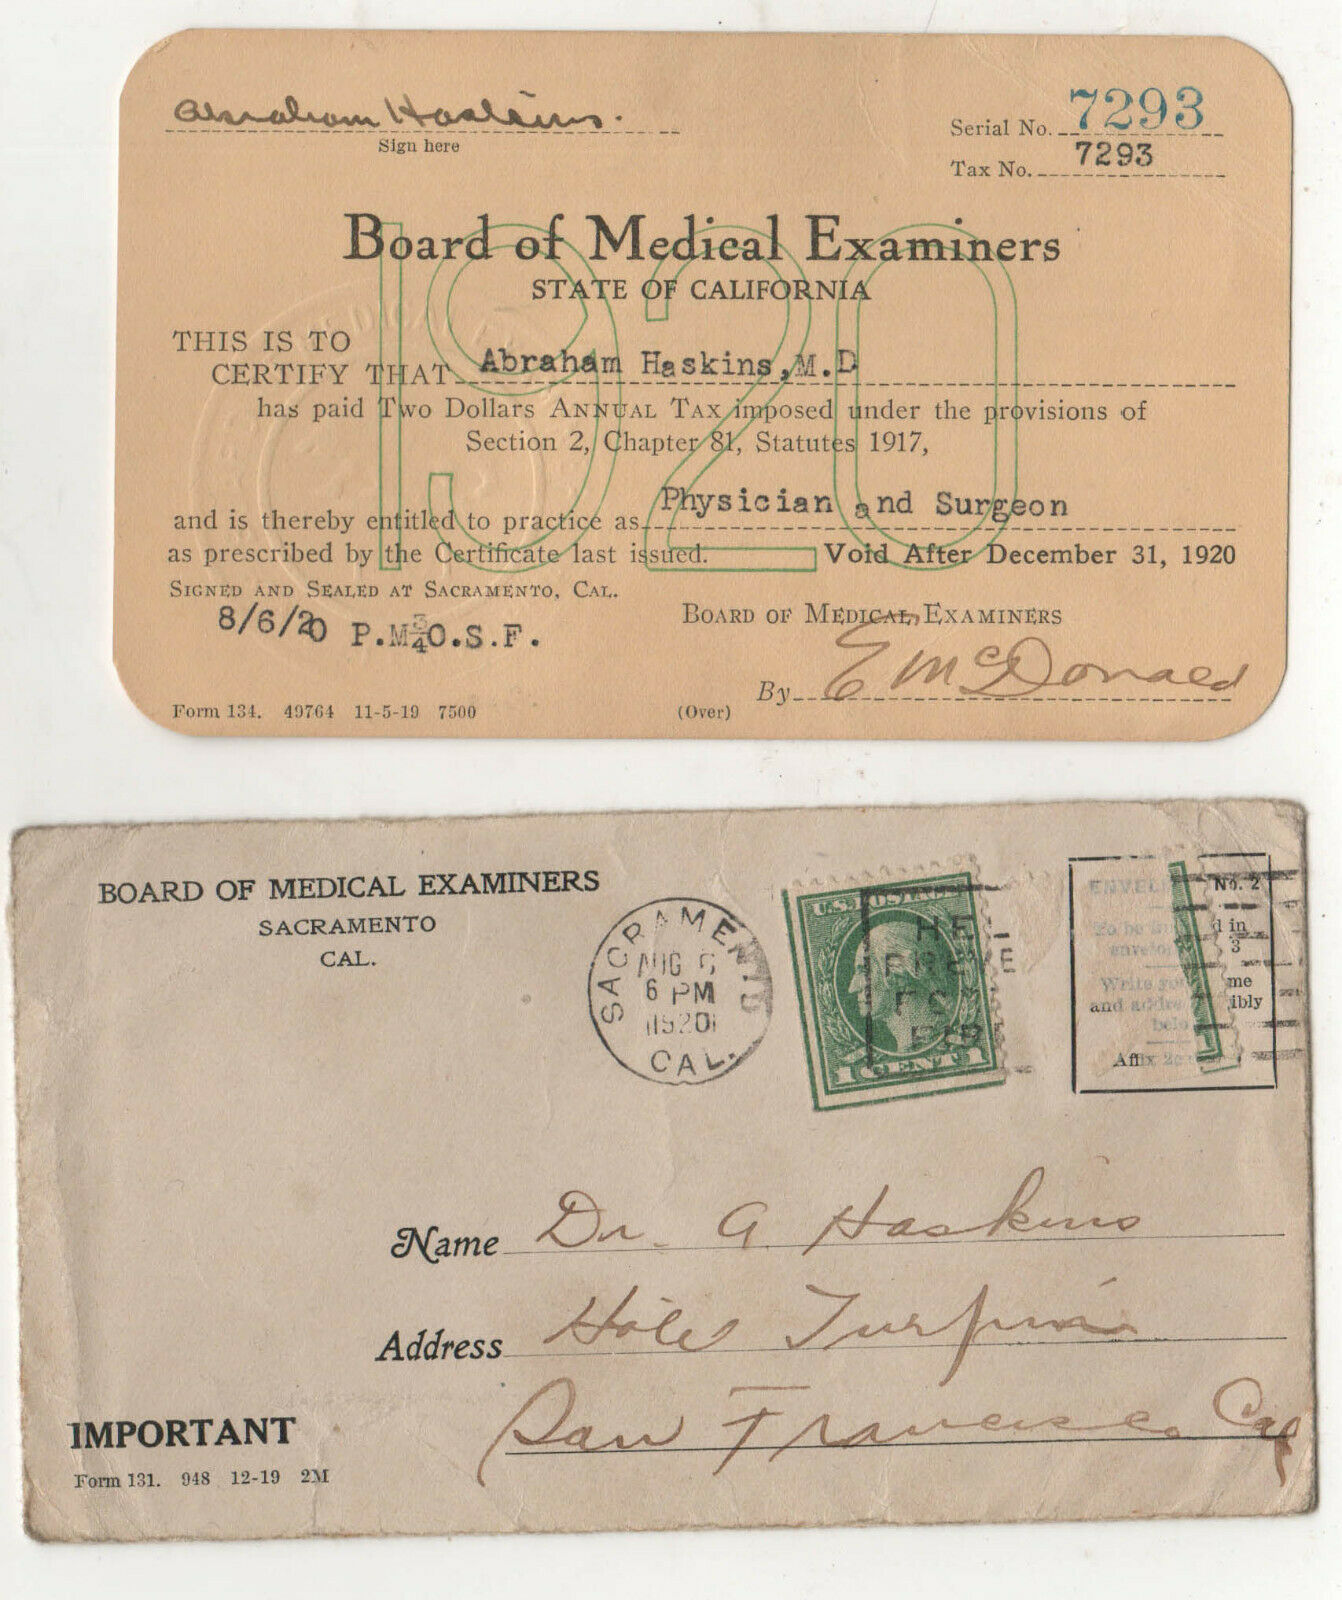 Abraham Haskins.
Sign here
Serial No. 7293
Tax No. 7293
1920
Board of Medical Examiners
STATE OF CALIFORNIA
THIS IS TO
CERTIFY THAT Abraham Haskins, M.D
has paid Two Dollars ANNUAL TAX imposed under the provisions of
Section 2, Chapter 81, Statutes 1917,
and is thereby entitled to practice as Physician and Surgeon
as prescribed by the Certificate last issued. Void After December 31, 1920
SIGNED AND SEALED AT SACRAMENTO, CAL.
8/6/20 P.M.O.S.F.
BOARD OF MEDICAL EXAMINERS
By E McDonald
Form 134. 49764 11-5-19 7500
(Over)
BOARD OF MEDICAL EXAMINERS
SACRAMENTO
CAL.
SACRAMENTO
AUG 6
6 PM
1920
CAL.
U.S. POSTAGE
1 CENT 1
No. 2
To be
d in
3
Write
me
and addre
ibly
Affix 2c
Name Dr. A Haskins
Address Hotel Turpin
San Francisco Cal
IMPORTANT
Form 131. 948 12-19 2M